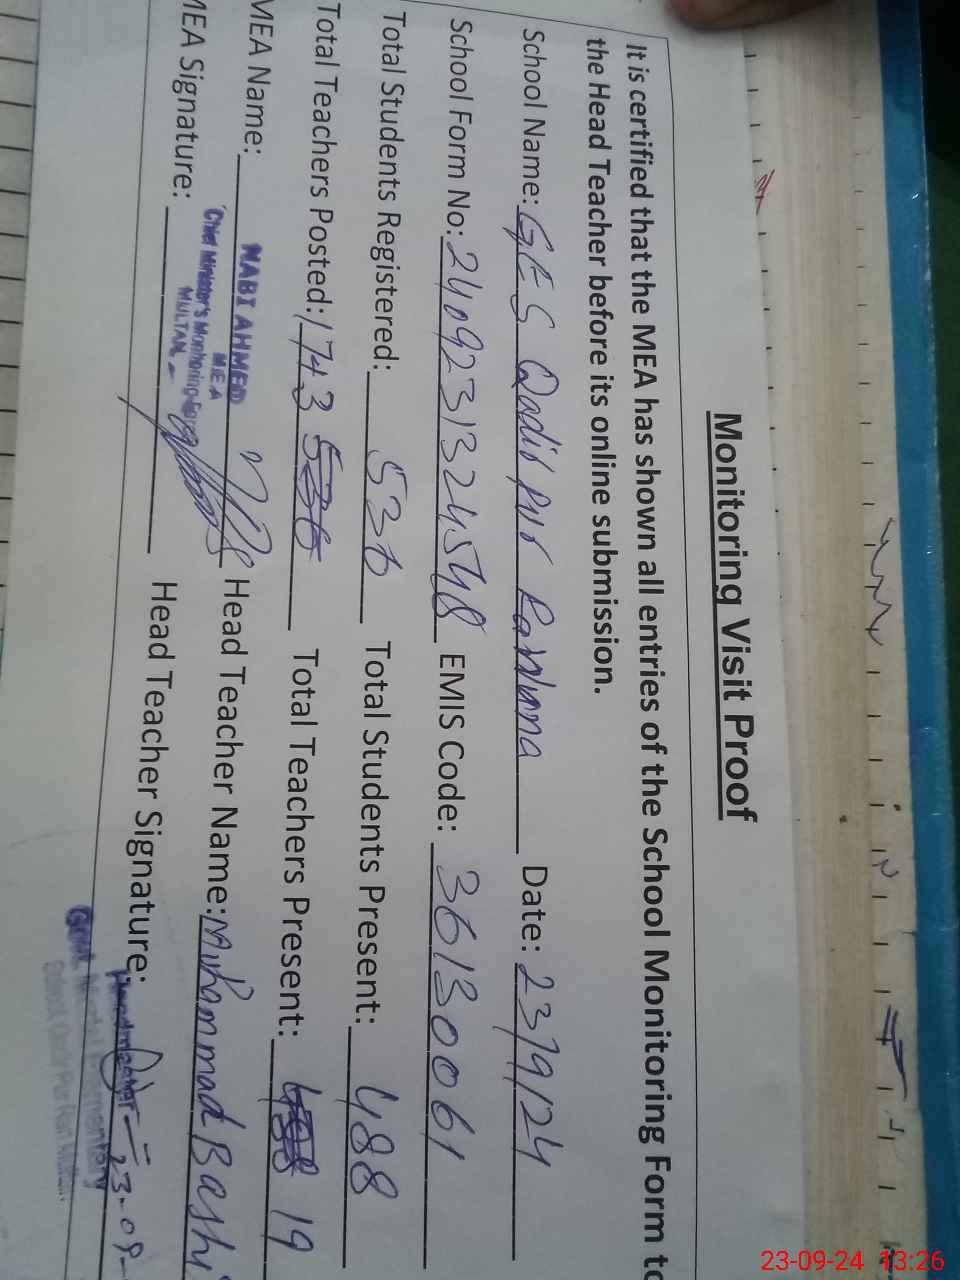 Monitoring Visit Proof
It is certified that the MEA has shown all entries of the School Monitoring Form to
the Head Teacher before its online submission.
School Name: GES Qadir pur Date: 23/9/24
School Form No: EMIS Code: 36130061
Total Students Registered: 536 Total Students Present: 488
Total Teachers Posted: Total Teachers Present: 19
MEA Name: NABI AHMED Head Teacher Name: Muhammad Bashi
MEA
Chief Minister's Monitoring Force
MULTAN
MEA Signature: Head Teacher Signature:
Headmaster 23-09-
Govt. Elementary
23-09-24 13:26